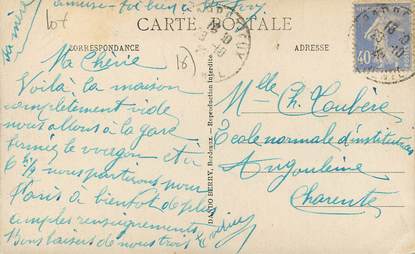 amuse-toi bien
ta mère
lot
CARTE POSTALE
CORRESPONDANCE
ADRESSE
16)
Ma Chérie
Voilà la maison
complètement vide
nous allons à la gare
fermer le wagon et à
6h 1/2 nous partons pour
Paris à bientôt de plus
amples renseignements
Bons baisers de nous trois
DANDO BERRY, Bordeaux - Reproduction interdite
40
Mlle Ch. Loubère
Ecole normale d'institutrices
Angoulême
Charente